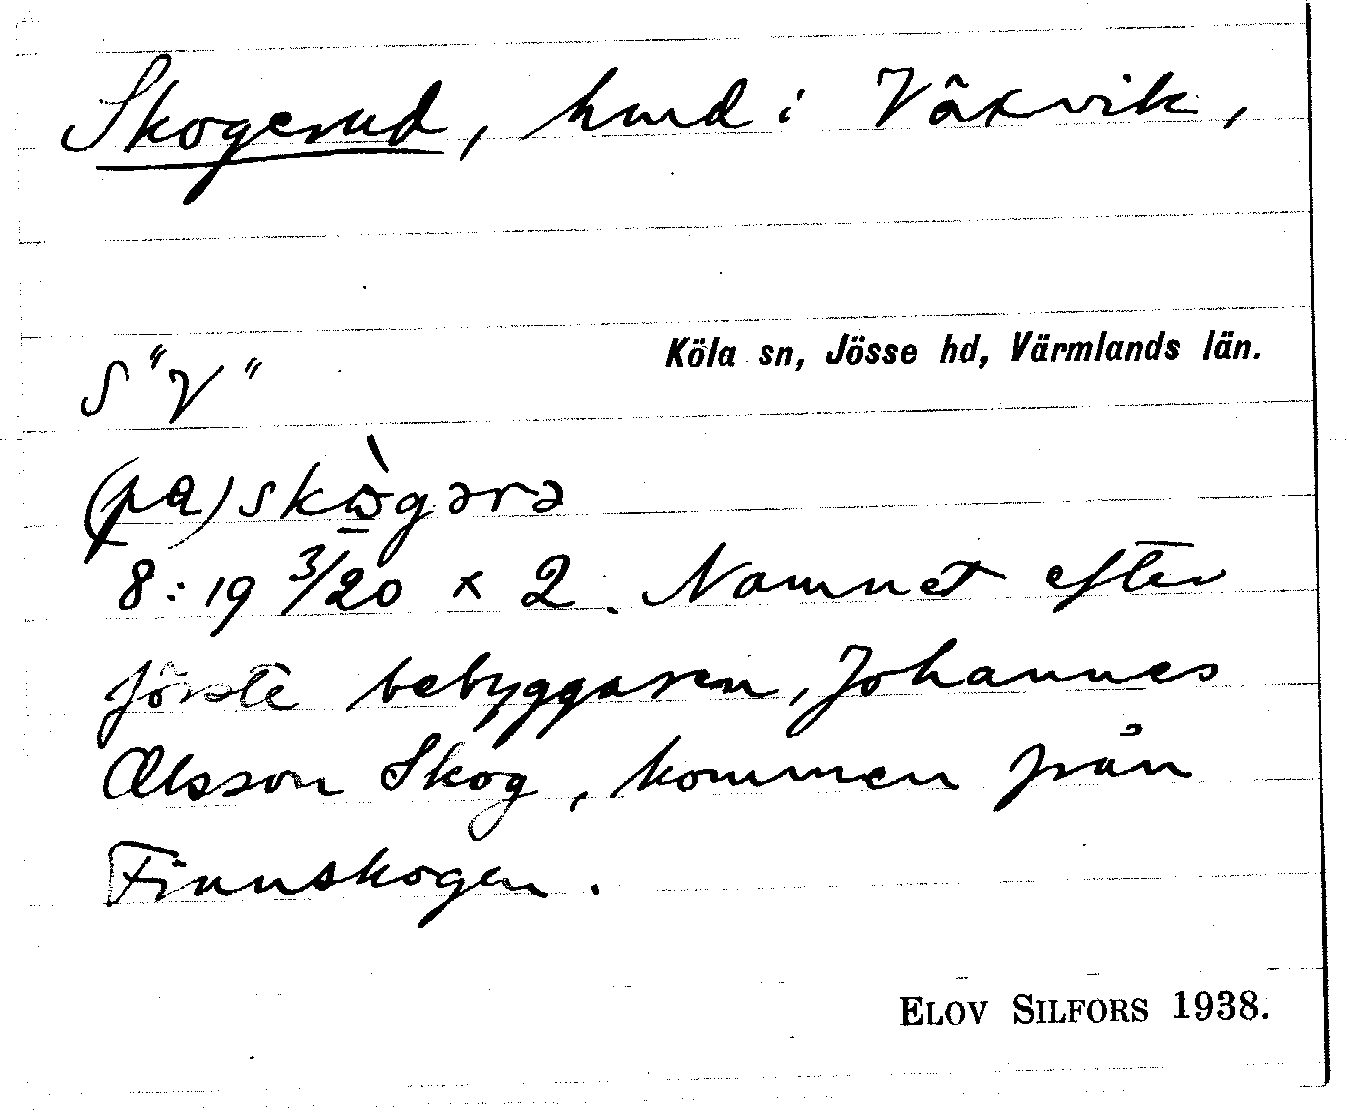 Skogerud, hmd i Växvik,
Köla sn, Jösse hd, Värmlands län.
S "V"
(pa) skò̱gərə
8:19 3/20 x 2. Namnet efter
förste bebyggaren, Johannes
Olsson Skog, kommen från
Finnskogen.
ELOV SILFORS 1938.